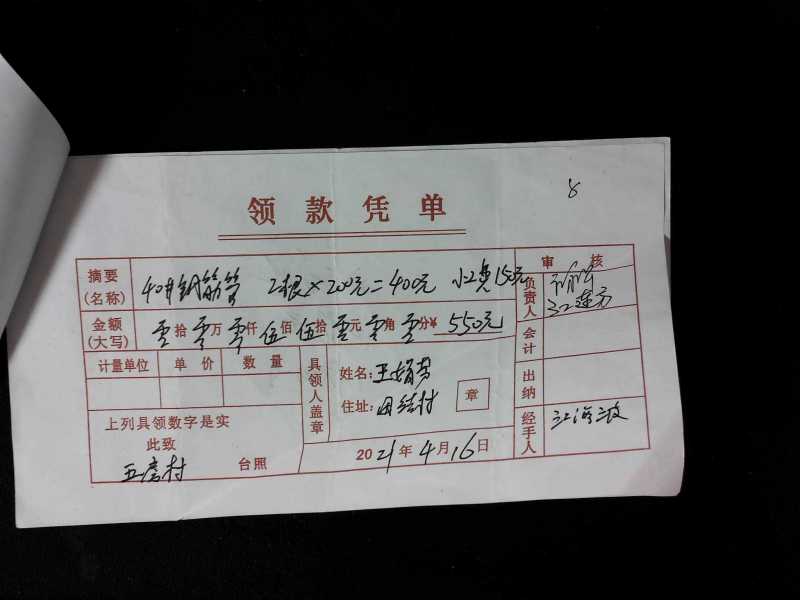 领款凭单
8
摘要(名称) 钢筋管 2根×200元=400元 小工费150元
审核
负责人
金额(大写) 零拾零万零仟伍佰伍拾零元零角零分¥ 550元
会计
计量单位 单价 数量
具领人盖章
姓名:王娟
住址:团结村
章
出纳
上列具领数字是实
此致
村 台照
2021年4月16日
经手人